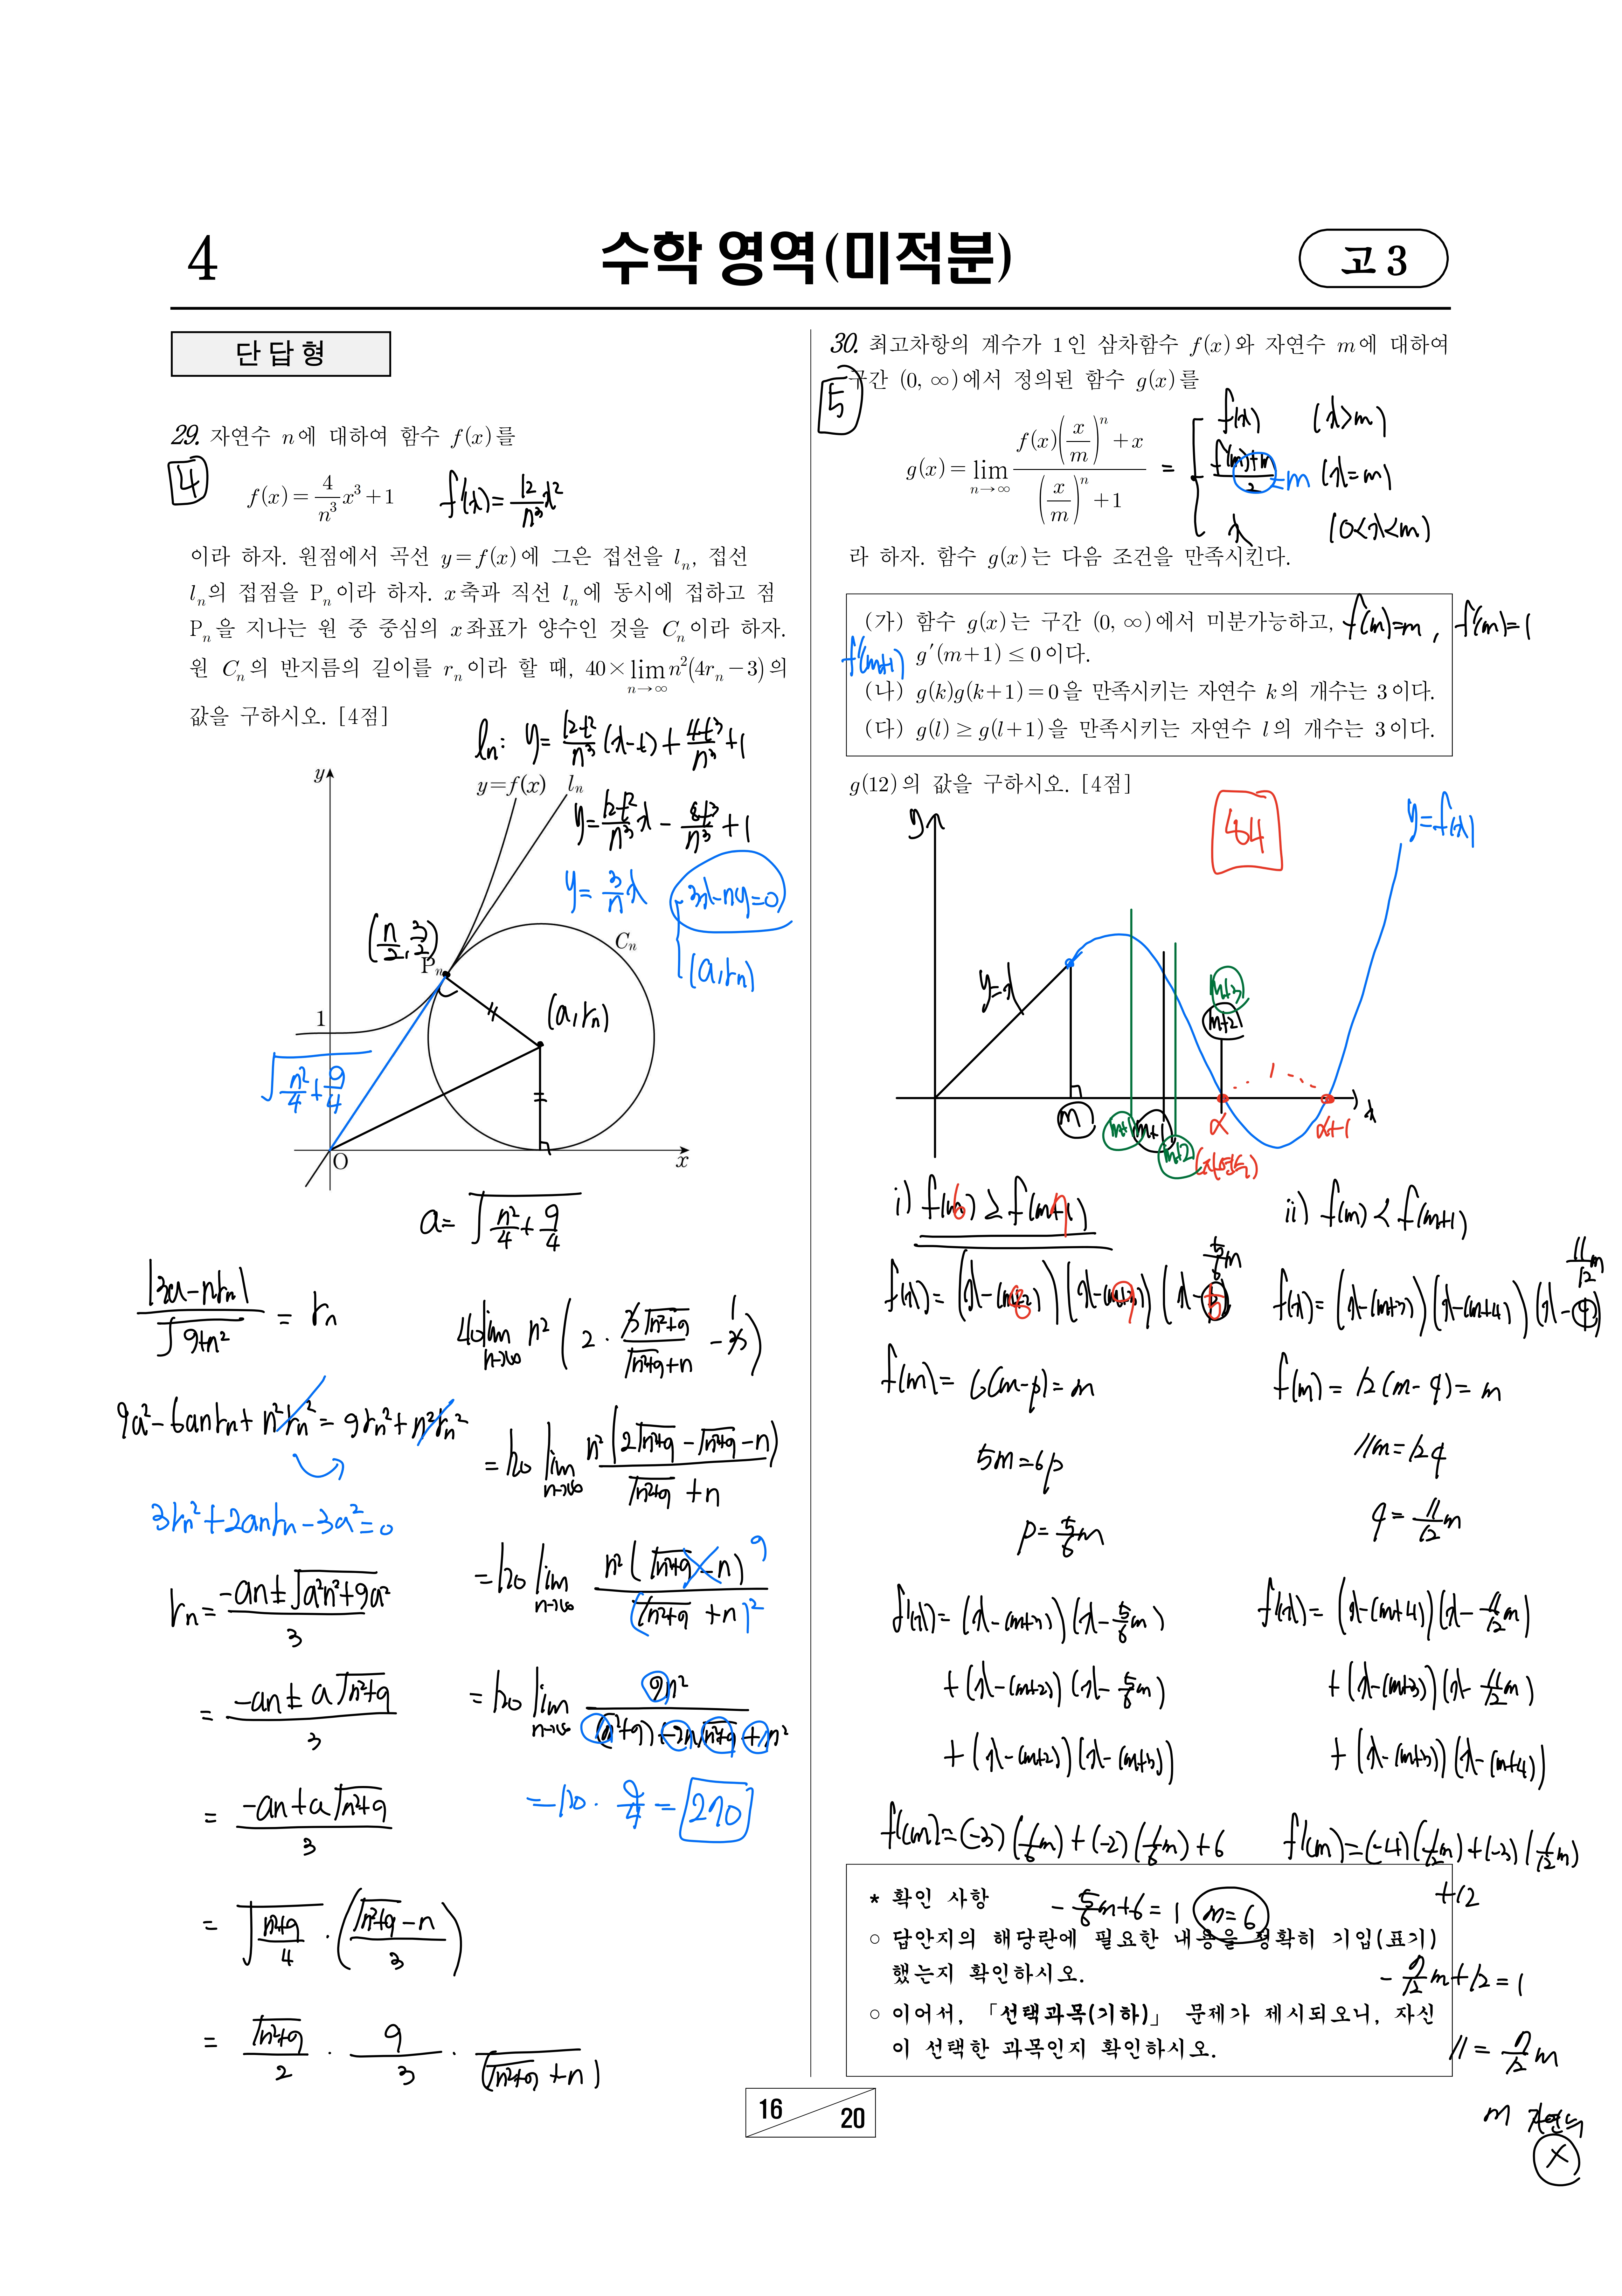 4
수학 영역(미적분)
고 3
단 답 형
29. 자연수 n에 대하여 함수 f(x)를
4
f(x)=4/n³ x³+1
f'(x)=12/n³ x²
이라 하자. 원점에서 곡선 y=f(x)에 그은 접선을 lₙ, 접선
lₙ의 접점을 Pₙ이라 하자. x축과 직선 lₙ에 동시에 접하고 점
Pₙ을 지나는 원 중 중심의 x좌표가 양수인 것을 Cₙ이라 하자.
원 Cₙ의 반지름의 길이를 rₙ이라 할 때, 40×lim n→∞ n²(4rₙ-3)의
값을 구하시오. [4점]
lₙ: y=12t²/n³ (x-t)+4t³/n³+1
y=12t²/n³ x - 8t³/n³ +1
y=3/n x
3x-ny=0
(a, rₙ)
y
y=f(x)
lₙ
(n/2, 3/2)
Pₙ
Cₙ
(a, rₙ)
1
√(n²/4+9/4)
O
x
a=√(n²/4+9/4)
|3a-nrₙ|/√(9+n²) = rₙ
9a²-6anrₙ+n²rₙ²=9rₙ²+n²rₙ²
3rₙ²+2anrₙ-3a²=0
rₙ=(-an±√(a²n²+9a²))/3
=(-an±a√(n²+9))/3
=(-an+a√(n²+9))/3
=√((n²+9)/4)·((√(n²+9)-n)/3)
=√(n²+9)/2 · 9/3 · 1/(√(n²+9)+n)
40 lim n→∞ n²(2·3√(n²+9)/(√(n²+9)+n) -3)
=120 lim n→∞ n²(2√(n²+9)-√(n²+9)-n)/(√(n²+9)+n)
=120 lim n→∞ n²(√(n²+9)-n) 9/(√(n²+9)+n)²
=120 lim n→∞ 9n²/((n²+9)+2n√(n²+9)+n²)
=120·9/4=270
30. 최고차항의 계수가 1인 삼차함수 f(x)와 자연수 m에 대하여
5
구간 (0, ∞)에서 정의된 함수 g(x)를
g(x)=lim n→∞ (f(x)(x/m)ⁿ+x)/((x/m)ⁿ+1)
= f(x) (x>m)
(f(m)+m)/2 =m (x=m)
x (0<x<m)
라 하자. 함수 g(x)는 다음 조건을 만족시킨다.
(가) 함수 g(x)는 구간 (0, ∞)에서 미분가능하고, f(m)=m, f'(m)=1
f'(m+1)
g'(m+1)≤0이다.
(나) g(k)g(k+1)=0을 만족시키는 자연수 k의 개수는 3이다.
(다) g(l)≥g(l+1)을 만족시키는 자연수 l의 개수는 3이다.
g(12)의 값을 구하시오. [4점]
84
y
y=f(x)
y=x
m+3
m+2
1
m
m+1
m+1
m+2
α
(자연수)
α+1
x
i) f(m)≥f(m+1)
6
7
f(x)=(x-(m+2))(x-(m+3))(x-p)
8
9
5
5/6 m
f(m)=6(m-p)=m
5m=6p
p=5/6 m
f'(x)=(x-(m+3))(x-5/6 m)
+(x-(m+2))(x-5/6 m)
+(x-(m+2))(x-(m+3))
f'(m)=(-3)(1/6 m)+(-2)(1/6 m)+6
-5/6 m+6=1 m=6
ii) f(m)<f(m+1)
11/12 m
f(x)=(x-(m+3))(x-(m+4))(x-q)
f(m)=12(m-q)=m
11m=12q
q=11/12 m
f'(x)=(x-(m+4))(x-11/12 m)
+(x-(m+3))(x-11/12 m)
+(x-(m+3))(x-(m+4))
f'(m)=(-4)(1/12 m)+(-3)(1/12 m)
+12
-7/12 m+12=1
11=7/12 m
m 자연수
X
* 확인 사항
○ 답안지의 해당란에 필요한 내용을 정확히 기입(표기)
했는지 확인하시오.
○ 이어서, 「선택과목(기하)」 문제가 제시되오니, 자신
이 선택한 과목인지 확인하시오.
16
20